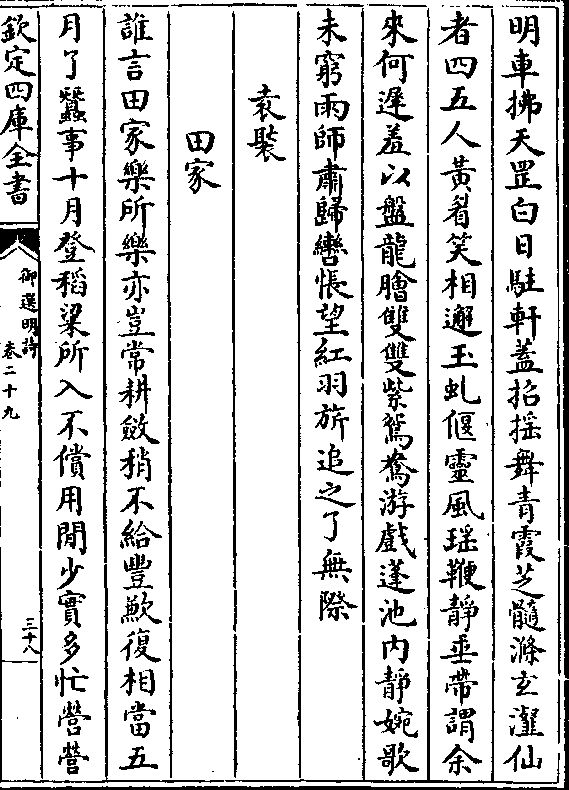 明車拂天罡白日駐軒蓋招摇舞青霞芝髓滌玄瀣仙
者四五人黃眉笑相邂玉虬偃靈風瑶鞭靜垂帶謂余
來何遲羞以盤龍膾雙雙紫鴛鴦游戲蓬池内靜婉歌
未窮雨師肅歸轡悵望紅羽旂追之了無際
袁裘
田家
誰言田家樂所樂亦豈常耕斂稍不給豐歉復相當五
月了蠶事十月登稻粱所入不償用閒少實多忙營營
欽定四庫全書
御選明詩
卷二十九
三十八